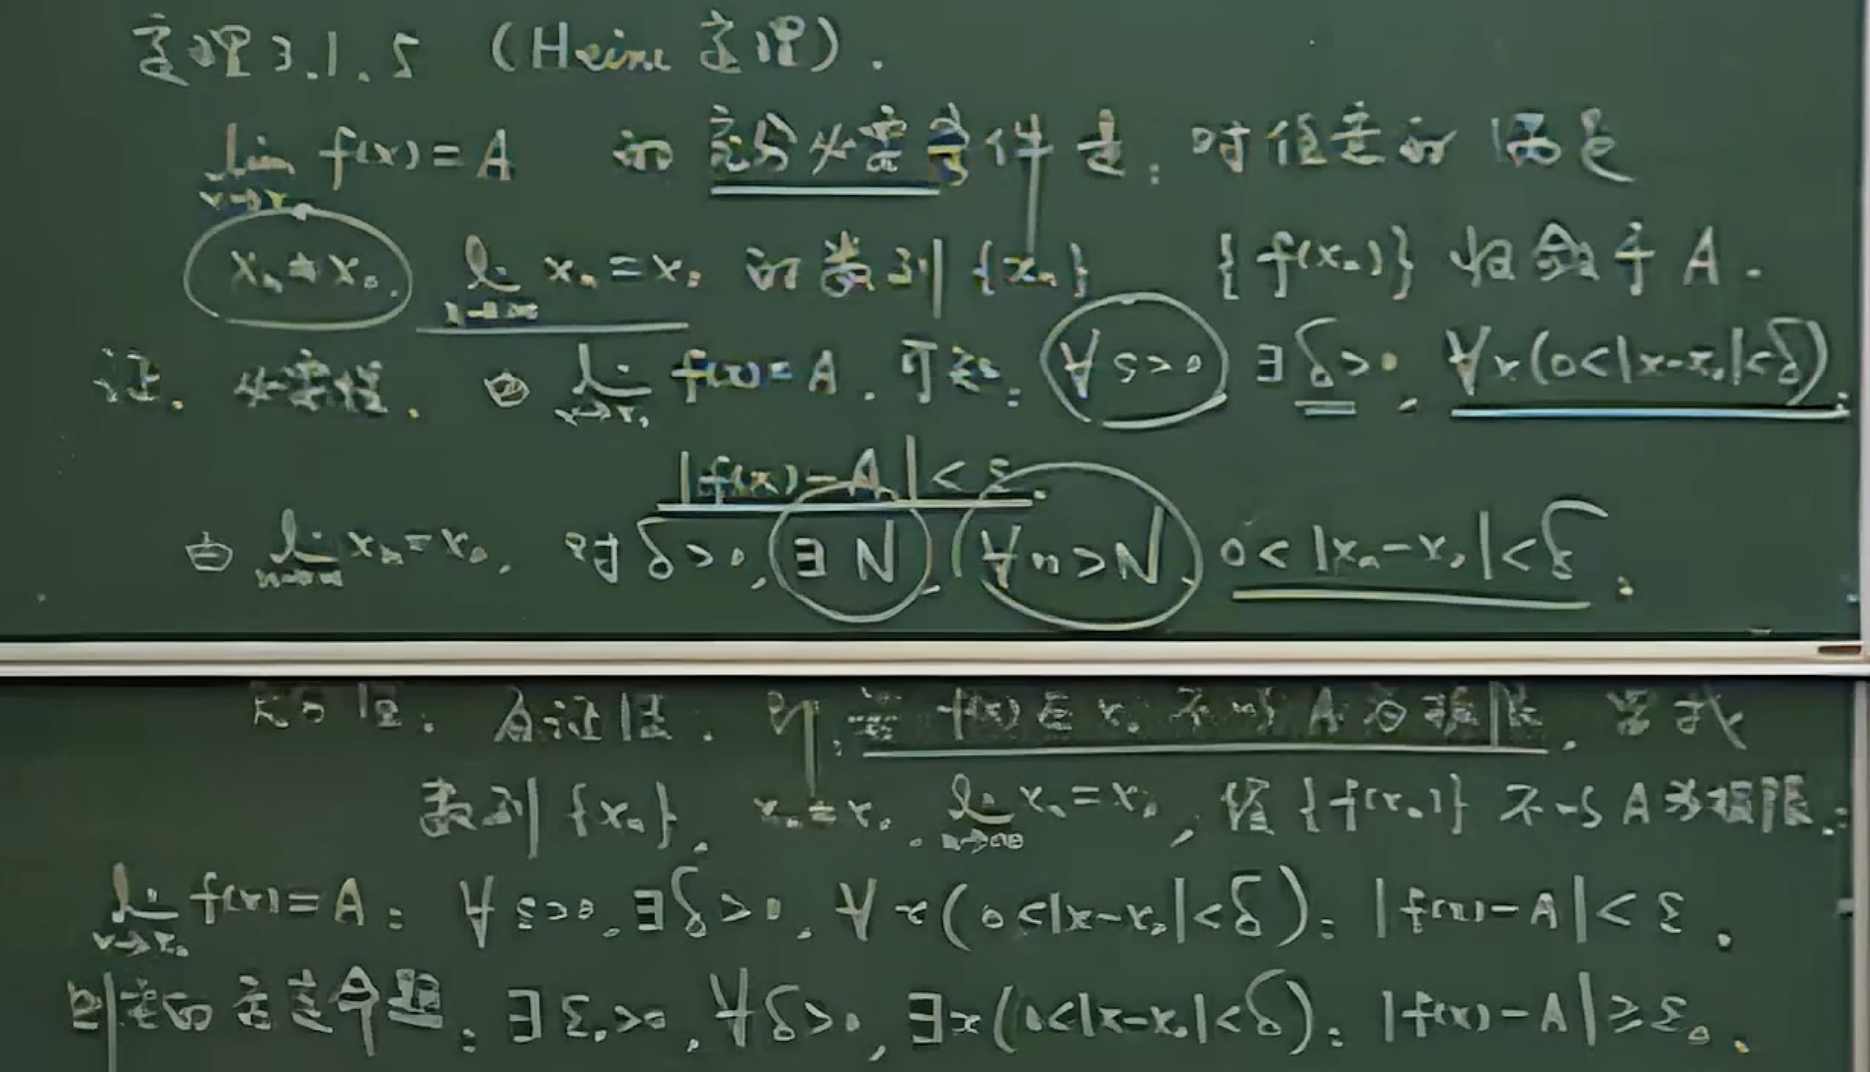 定理3.1.5 (Heine 定理).
lim x→x₀ f(x)=A 的充分必要条件是:对任意的满足
xₙ≠x₀, lim n→∞ xₙ=x₀ 的数列{xₙ} {f(xₙ)} 收敛于 A.
证. 必要性. 由 lim x→x₀ f(x)=A. 可知: ∀ε>0 ∃δ>0, ∀x(0<|x-x₀|<δ):
|f(x)-A|<ε.
由 lim n→∞ xₙ=x₀, 对δ>0, ∃N, ∀n>N, 0<|xₙ-x₀|<δ.
充分性. f(x)在x₀不以A为极限. 要找
数列{xₙ}, xₙ≠x₀, lim n→∞ xₙ=x₀, 但{f(xₙ)}不以A为极限.
lim x→x₀ f(x)=A: ∀ε>0, ∃δ>0, ∀x(0<|x-x₀|<δ): |f(x)-A|<ε.
它的否定命题: ∃ε₀>0, ∀δ>0, ∃x(0<|x-x₀|<δ): |f(x)-A|≥ε₀.